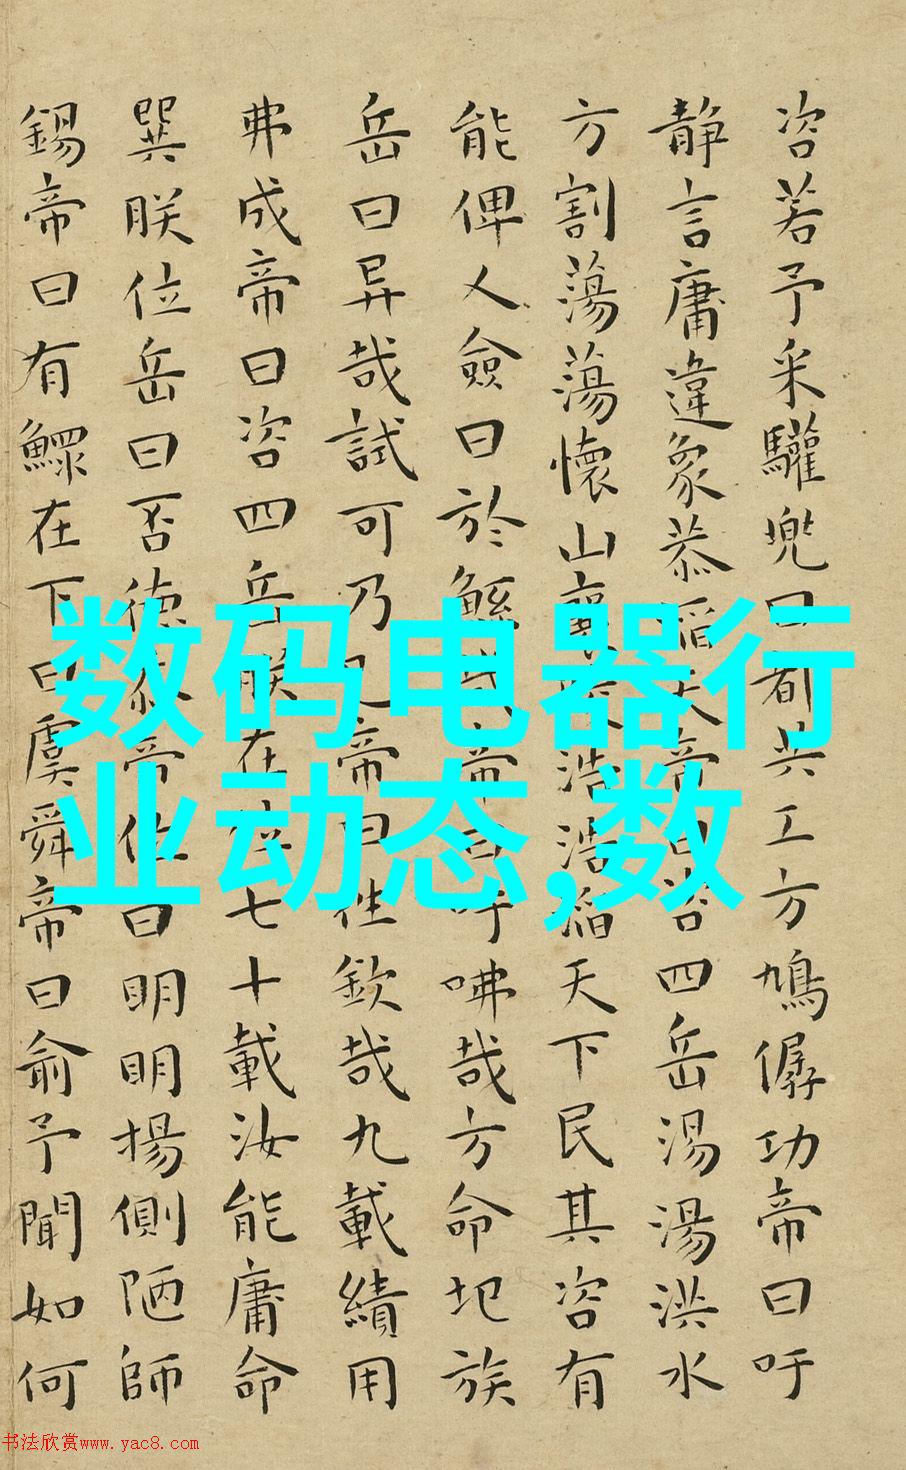 咨若予采驩兜曰都共工方鳩僝功帝曰吁
静言庸違象恭滔天帝曰咨四岳湯湯洪水
方割蕩蕩懷山襄陵浩浩滔天下民其咨有
能俾人僉曰於鯀哉帝曰吁咈哉方命圯族
岳曰异哉試可乃已帝曰往欽哉九載績用
弗成帝曰咨四岳朕在位七十載汝能庸命
巽朕位岳曰否德忝帝位曰明明揚側陋師
錫帝曰有鰥在下曰虞舜帝曰俞予聞如何
数码电器行
业动态,数
书法欣赏www.yac8.com